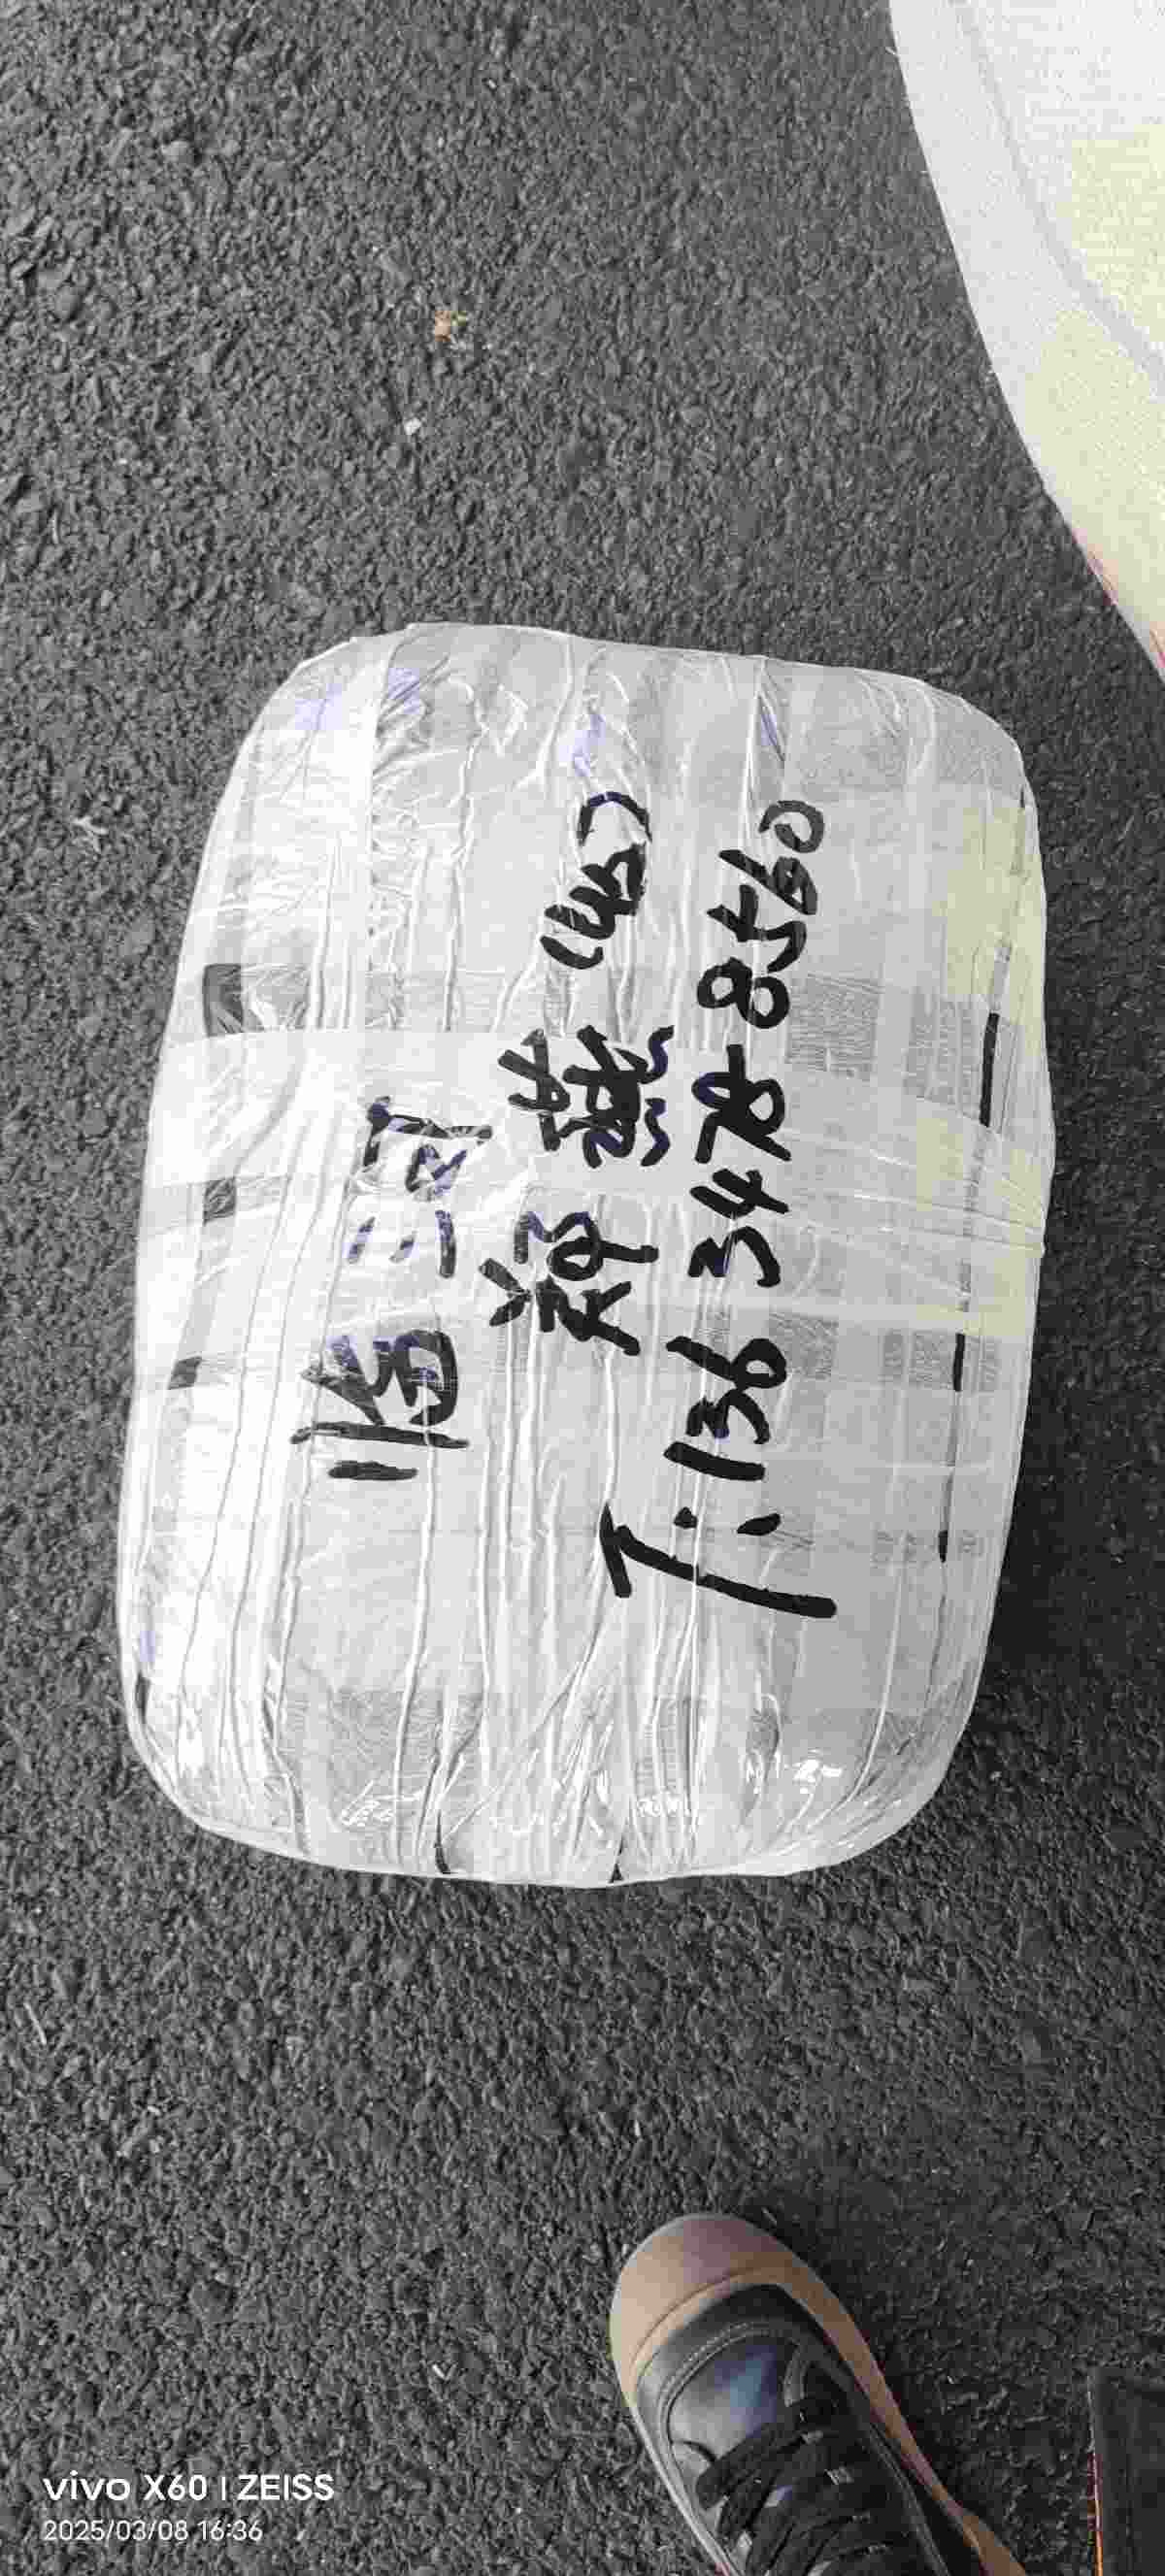 临河
郑燕 (45)
T: 136 3478 8560
vivo X60 | ZEISS
2025/03/08 16:36